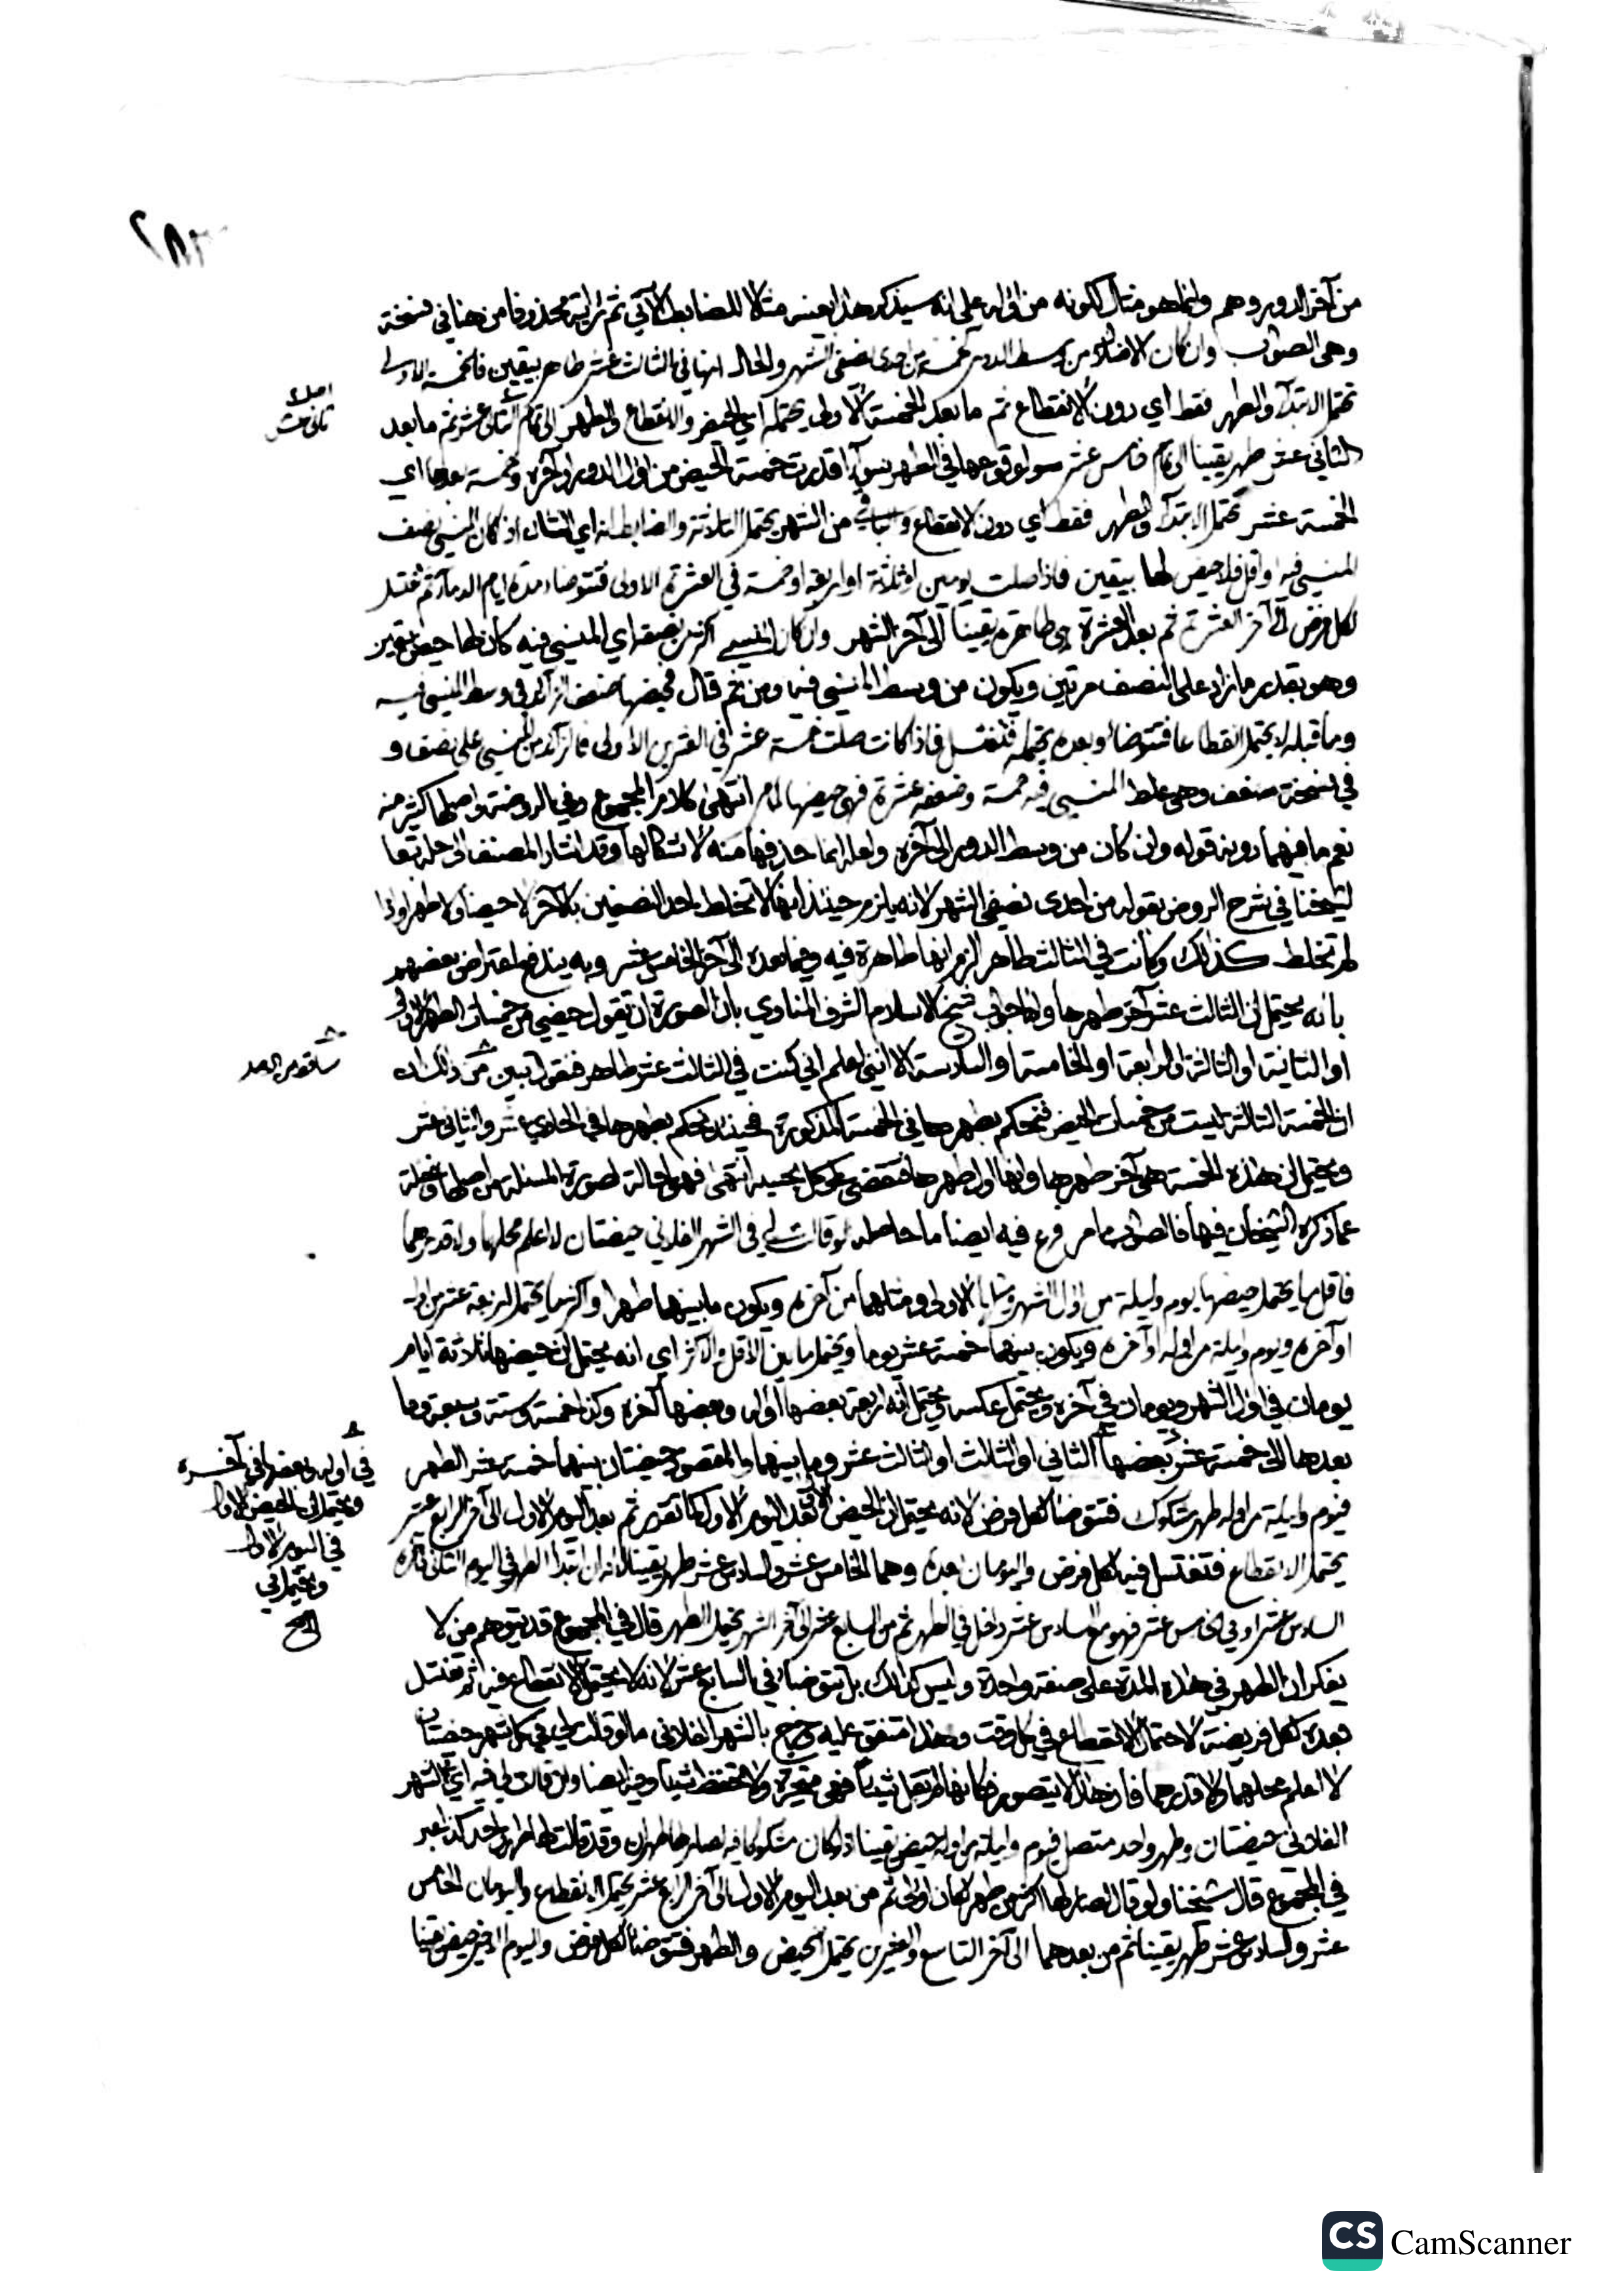 ٢٨٣
من آخر الدور وهم وإنما هو مثال لكونه من أوله على انه سيذكر هذا بعينه مثالا للضابط الآتي ثم رأيته محذوفا من هنا في نسخة
وهي الصواب وان كان الاضلال من وسط الدور كخمسة من احدى نصفي الشهر والحال انها في الثالث عشر طاهر بيقين فالخمسة الاولى
تحتمل الابتدآء والطهر فقط اي دون الانقطاع ثم ما بعد الخمسة الاولى يحتمله اي الحيض والانقطاع والطهر الى تمام الثاني عشر ثم ما بعد
الثاني عشر طهر يقينا الى تمام خامس عشر سوا لوقوعها في الطهر سوآ قدرت خمسة الحيض من اول الدور او آخره وخمسة بعدها اي
الخمسة عشر تحتمل الابتدآ والطهر فقط اي دون الانقطاع والباقي من الشهر يحتمل الثلاثة والضابط انه اي الشان اذ كان المنسي نصف
المنسي فيه او اقل فلا حيض لها بيقين فاذا ضلت يومين او ثلاثة او اربعة او خمسة في العشرة الاولى فتتوضا مدة ايام الدم مآ ثم تغتسل
لكل فرض الى آخر العشرة ثم بعد العشرة هي طاهرة يقينا الى آخر الشهر وان كان المنسي اكثر من نصفه اي المنسي فيه كان لها حيض بيقين
وهو بقدر ما زاد على النصف مرتين ويكون من وسط المنسي فيه ومن ثم قال فحيضها ضعف الزآئد في وسط المنسي فيه
وما قبله لا يحتمل انقطاعا فتتوضا وبعده يحتمله فتغتسل فاذا كانت ضلت خمسة عشر في العشرين الاولى فالزآئد من المنسي على نصف و
في نسخة ضعف وهي غلط المنسي فيه خمسة وضعفه عشرة فهي حيضها لما مر انتهى كلام المجموع وفي الروضة واصلها كثير منه
نعم ما فيهما دون قوله وان كان من وسط الدور الى آخره ولعله انما حذفها منه لاشكالها وقد اشار المصنف الى حله تبعا
لشيخنا في شرح الروض بقوله من احدى نصفي الشهر لانه يلزم حينئذ انها لا تخلط احد النصفين بالآخر لا حيضا ولا طهرا واذا
لم تخلط كذلك وكانت في الثالث طاهر الزم انها طاهرة فيه وفيما بعده الى آخر الخامس عشر وبه يندفع اعتراض بعضهم
بانه يحتمل ان الثالث عشر آخر طهرها واما جواب شيخ الاسلام الشرف المناوي بان الصورة ان تقول حيضي من خمسات الطهر الاولى
او الثانية او الثالثة او الرابعة او الخامسة او السادسة الا انني اعلم اني كنت في الثالث عشر طاهر فنقول تبين من ذلك
ان الخمسة الثالثة ليست من خمسات الحيض فنحكم بطهرها في الخمسة المذكورة فحينئذ نحكم بطهرها في الحادي عشر والثاني عشر
ويحتمل ان هذه الخمسة هي آخر طهرها وانها اول طهرها فتقضي على كل بحسبه انتهى فهو احالة لصورة المسئلة من اصلها وغفلة
عما ذكره الشيخان فيها فالصواب ما مر فرع فيه ايضا ما حاصله لو قالت لي في الشهر الفلاني حيضتان لا اعلم محلهما ولا قدرهما
فاقل ما يحتمل حيضها يوم وليلة من اول الشهر الاولى ومثلهما من آخره ويكون ما بينهما طهرا واكثر ما يحتمل اربعة عشر من اوله
او آخره ويوم وليلة من اوله او آخره ويكون بينهما خمسة عشر يوما ويحتمل ما بين الاقل والاكثر اي انه يحتمل ان حيضها ثلاثة ايام
يومان في اول الشهر ويومان في آخره ويحتمل عكسه ويحتمل انه اربعة بعضها اوله وبعضها آخره وكذا خمسة وستة وسبعة وما
بعدها الى خمسة عشر بعضها الثاني او الثالث او الثالث عشر وما بينهما والمقصود حيضتان بينهما خمسة عشر الطهر
فيوم وليلة من اوله طهر مشكوك فتتوضا لكل فرض لانه يحتمل ان الحيض بعد اليوم الاول كما تقرر ثم بعد اليوم الاول الى آخر الرابع عشر
يحتمل الانقطاع فتغتسل فيه لكل فرض واليومان بعده وهما الخامس عشر والسادس عشر طهر يقينا لانه ان ابتدا الطهر في اليوم الثاني
السادس عشر او في الخامس عشر فهو مع السادس عشر داخل في الطهر ثم من السابع عشر الى آخر الشهر يحتمل الطهر قال في المجموع قد يتوهم من لا
يفكر ان الطهر في هذه المدة على صفة واحدة وليس كذلك بل تتوضا في السابع عشر لانه لا يحتمل الانقطاع فيه ثم تغتسل
بعده لكل فريضة لاحتمال الانقطاع في كل وقت وهذا متفق عليه وخرج بالشهر الفلاني ما لو قالت لي في كل شهر حيضتان
لا اعلم محلهما ولا قدرهما فان هذا لا يتصور فكانها لم تقل شيئا فهي متحيرة ولا تحفظ شيئا وفيه ايضا ولو قالت لي فيه اي الشهر
الفلاني حيضتان وطهر واحد متصل فيوم وليلة من اوله حيض يقينا اذ لو كان مشكوكا فيه لصار لها طهران وقد قالت لها طهر واحد كذا عبر
في المجموع قال شيخنا ولو قال لصار لها اكثر من طهر لكان اولى ثم من بعد اليوم الاول الى آخر الرابع عشر يحتمل الانقطاع واليومان الخامس
عشر والسادس عشر طهر يقينا ثم من بعدهما الى آخر التاسع والعشرين يحتمل الحيض والطهر فتتوضا لكل فرض واليوم الاخير حيض يقينا
في اوله وبعضها في آخره
ويحتمل ان الحيض الاول
في اليوم الاول
ويحتمل في
صح
CamScanner